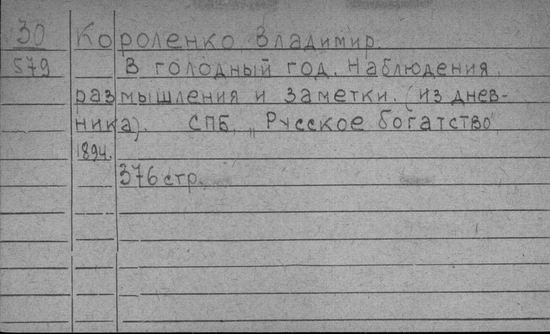 30 Короленко Владимир.
579 В голодный год. Наблюдения,
размышления и заметки. (из днев-
ника). СПБ, „Русское богатство"
1894.
376 стр.